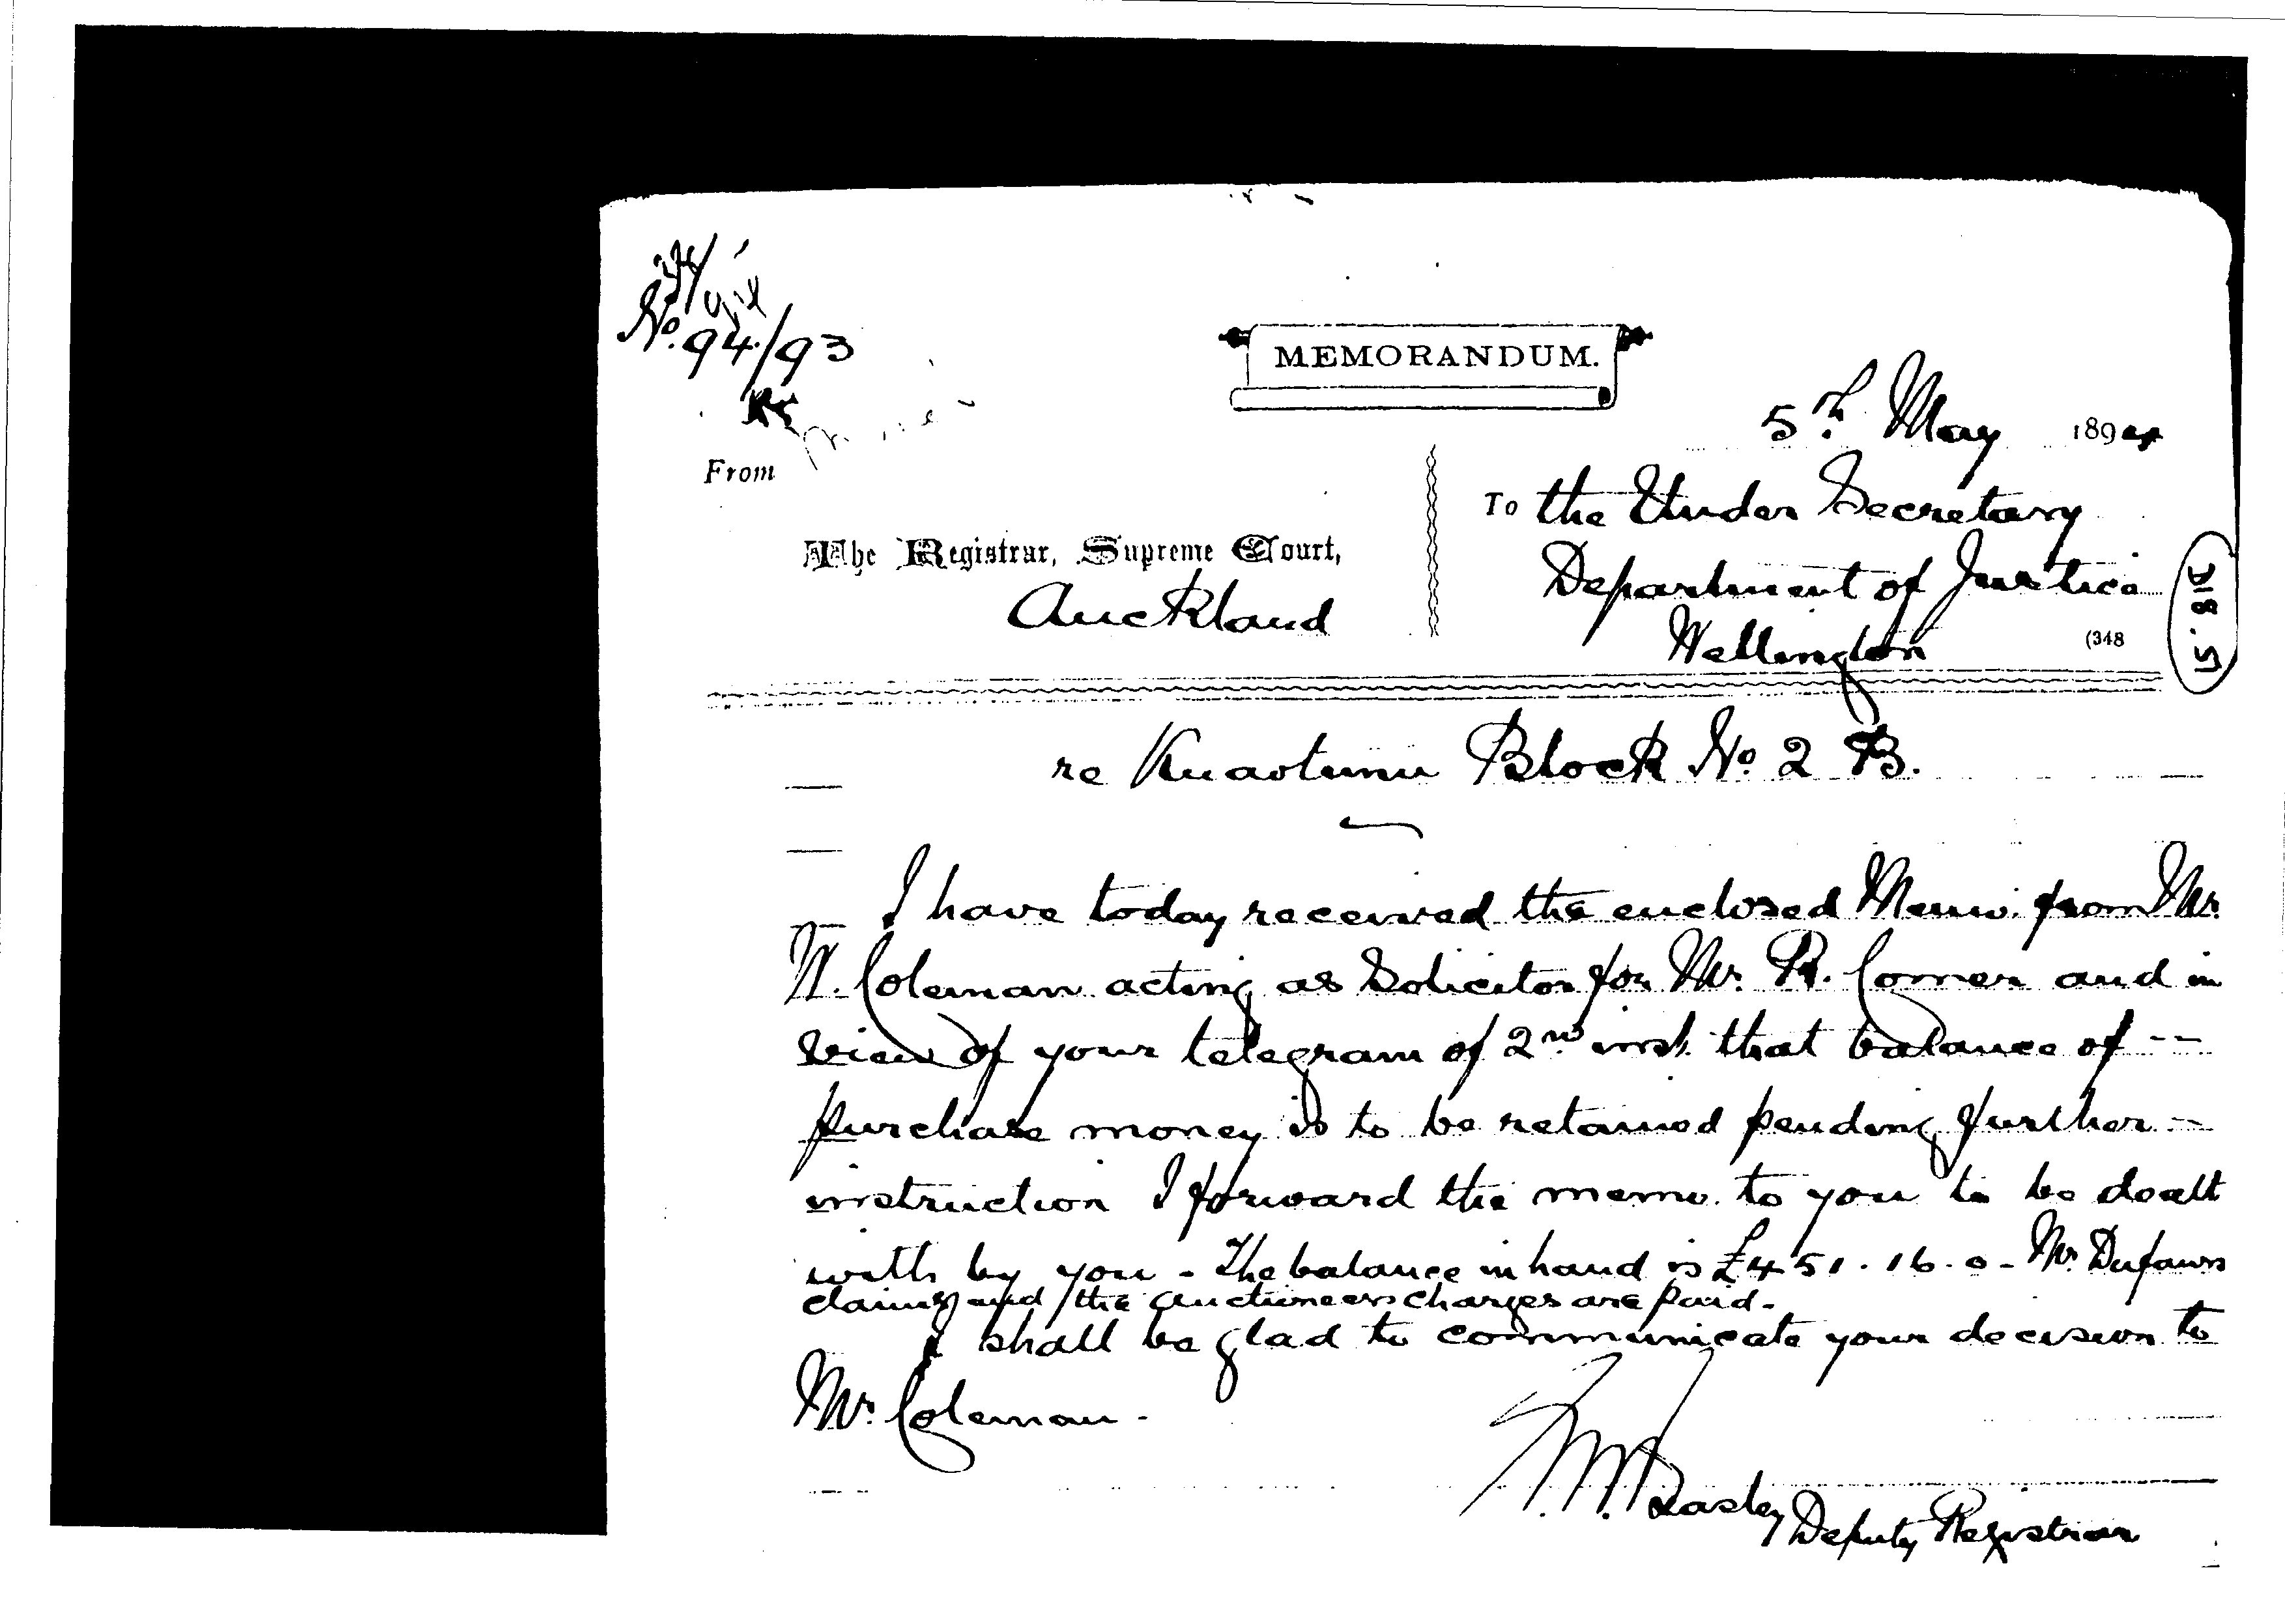 No. 94/93
MEMORANDUM.
5th May 1894
From
To the Under Secretary
The Registrar, Supreme Court,
Department of Justice
Auckland
Wellington
(348
318.51
re Kuaotunu Block No 2 B.
I have today received the enclosed Memo. from Mr.
W. Coleman acting as Solicitor for Mr. R. Comer and in
view of your telegram of 2nd inst. that balance of --
purchase money is to be retained pending further -
instruction I forward the memo. to you to be dealt
with by you - The balance in hand is £451.16.0 - Mr Dufaurs
claims and the auctioneers charges are paid -
I shall be glad to communicate your decision to
Mr. Coleman -
Deputy Registrar